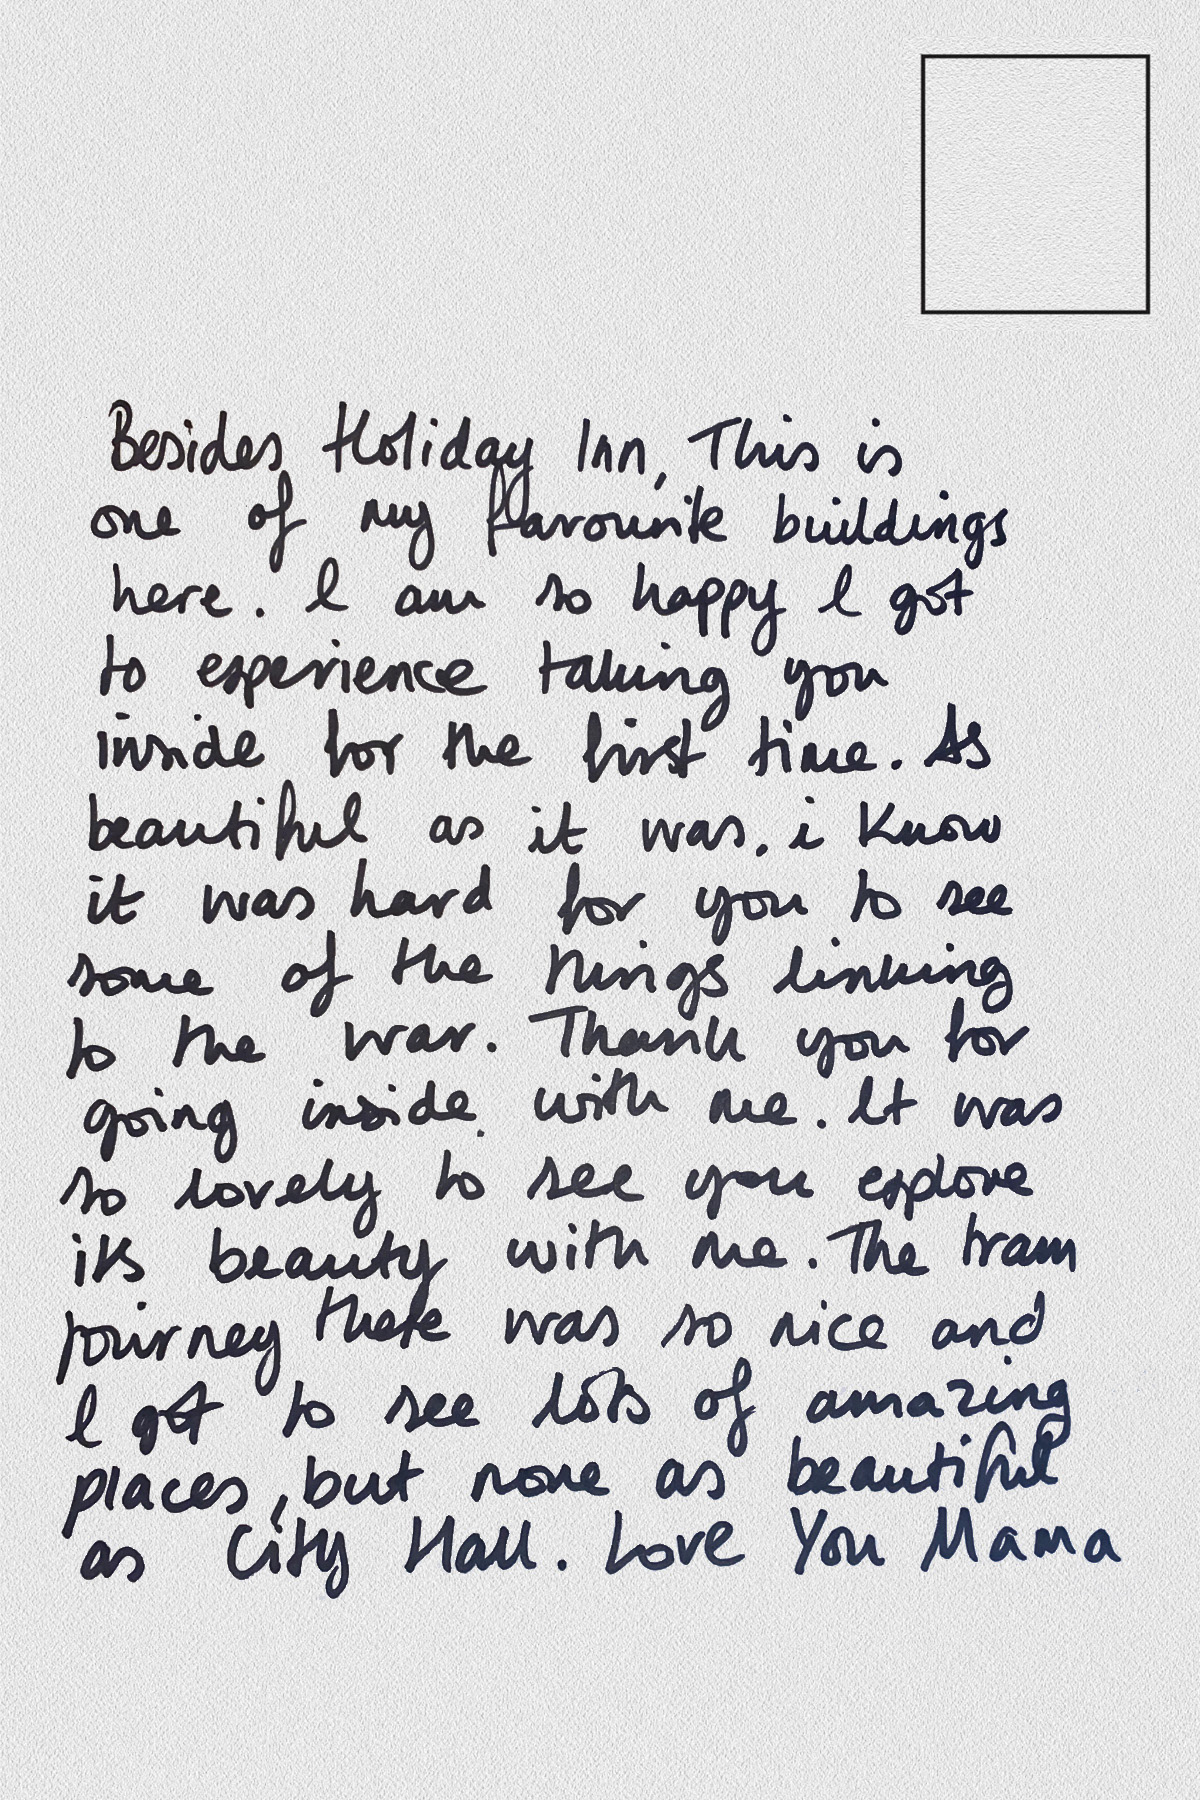 Besides Holiday Inn, This is
one of my favourite buildings
here. I am so happy I got
to experience taking you
inside for the first time. As
beautiful as it was, i know
it was hard for you to see
some of the things linking
to the war. Thank you for
going inside with me. It was
so lovely to see you explore
its beauty with me. The tram
journey there was so nice and
I got to see lots of amazing
places, but none as beautiful
as City Hall. Love You Mama